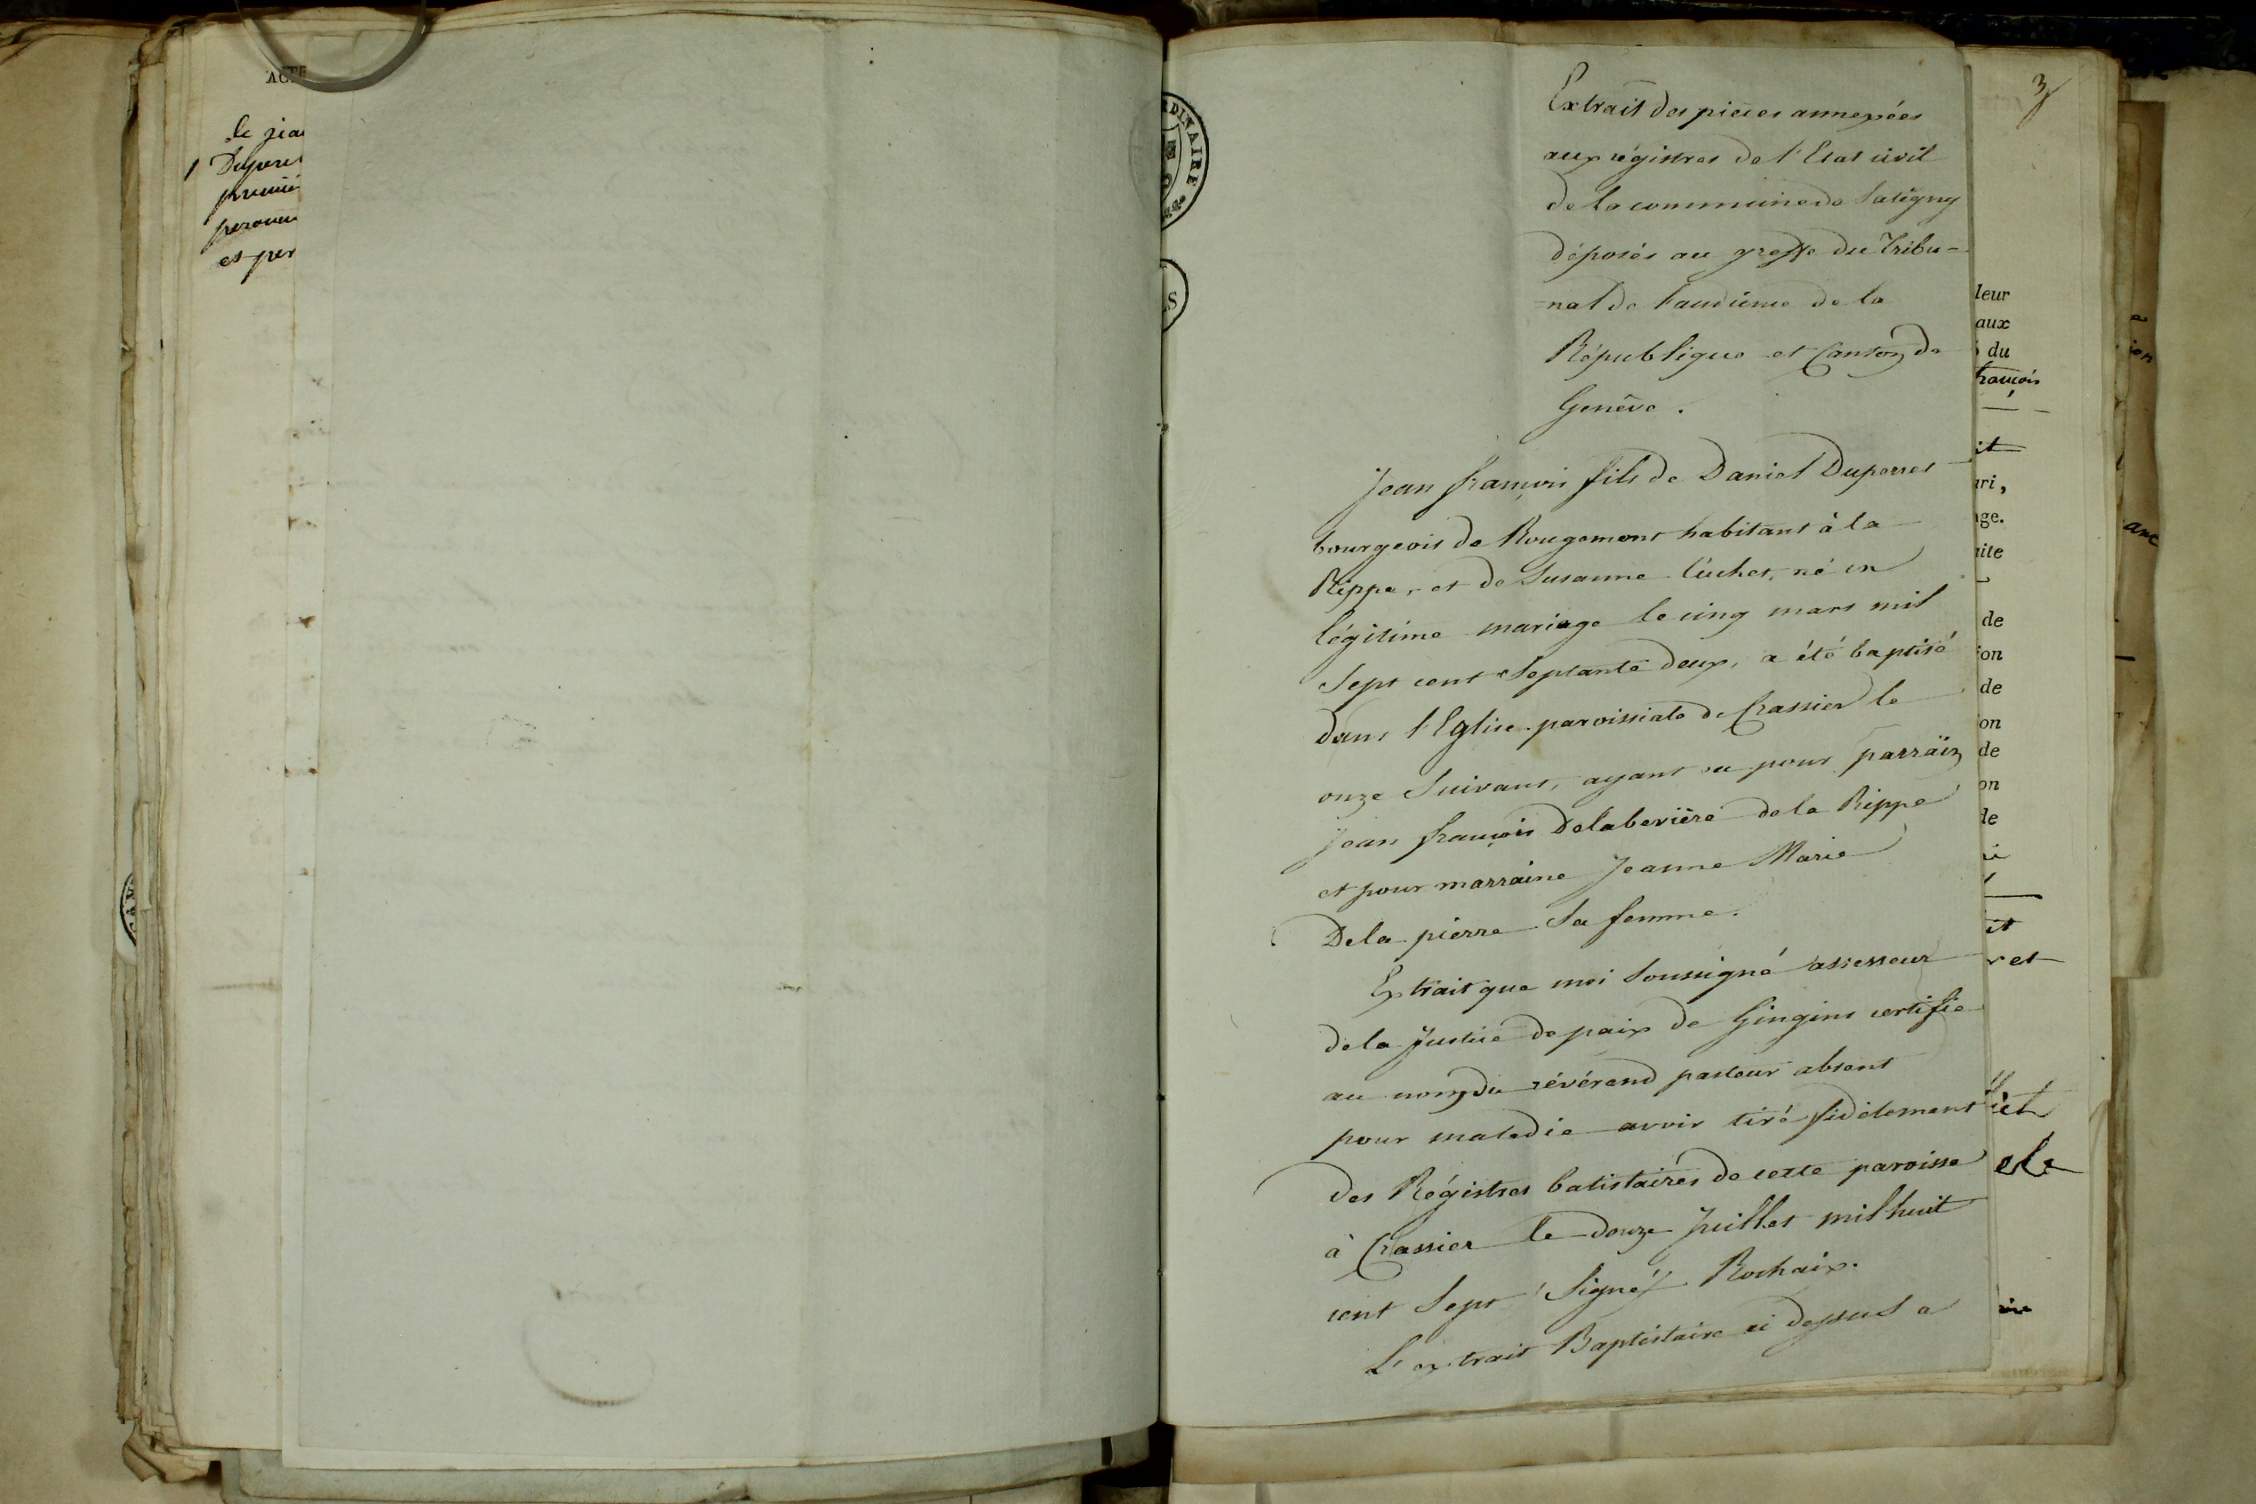 ACTE
1 Duperr
et per
RDINAIRE
S
3
Extrait des pièces annexées
aux régistres de l'Etat civil
de la commune de Satigny
déposés au greffe du Tribu=
=nal de l'audience de la
République et Canton de
Genêve.
Jean françois fils de Daniel Duperret
bourgeois de Rougemont habitant à la
Rippe, et de Susanne Cuchet, né en
légitime mariage le cinq mars mil
Sept cent Septante deux, a été baptisé
dans l'Eglise paroissiale de Crassier le
onze Suivant, ayant eu pour parrain
Jean françois Delabevière de la Rippe
et pour marraine Jeanne Marie
Dela pierre Sa femme.
Extrait que moi Soussigné assesseur
de la Justice de paix de Gingins certifie
au nom du révérend pasteur absent
pour maladie avoir tiré fidèlement
des Régistres batistaires de cette paroisse
à Crassier le douze Juillet mil huit
cent Sept Signé/ Rochaix.
L'extrait Baptistaire ci dessus a
leur
aux
du
françois
it
ri,
ge.
ite
de
ion
de
on
de
on
de
et
ret